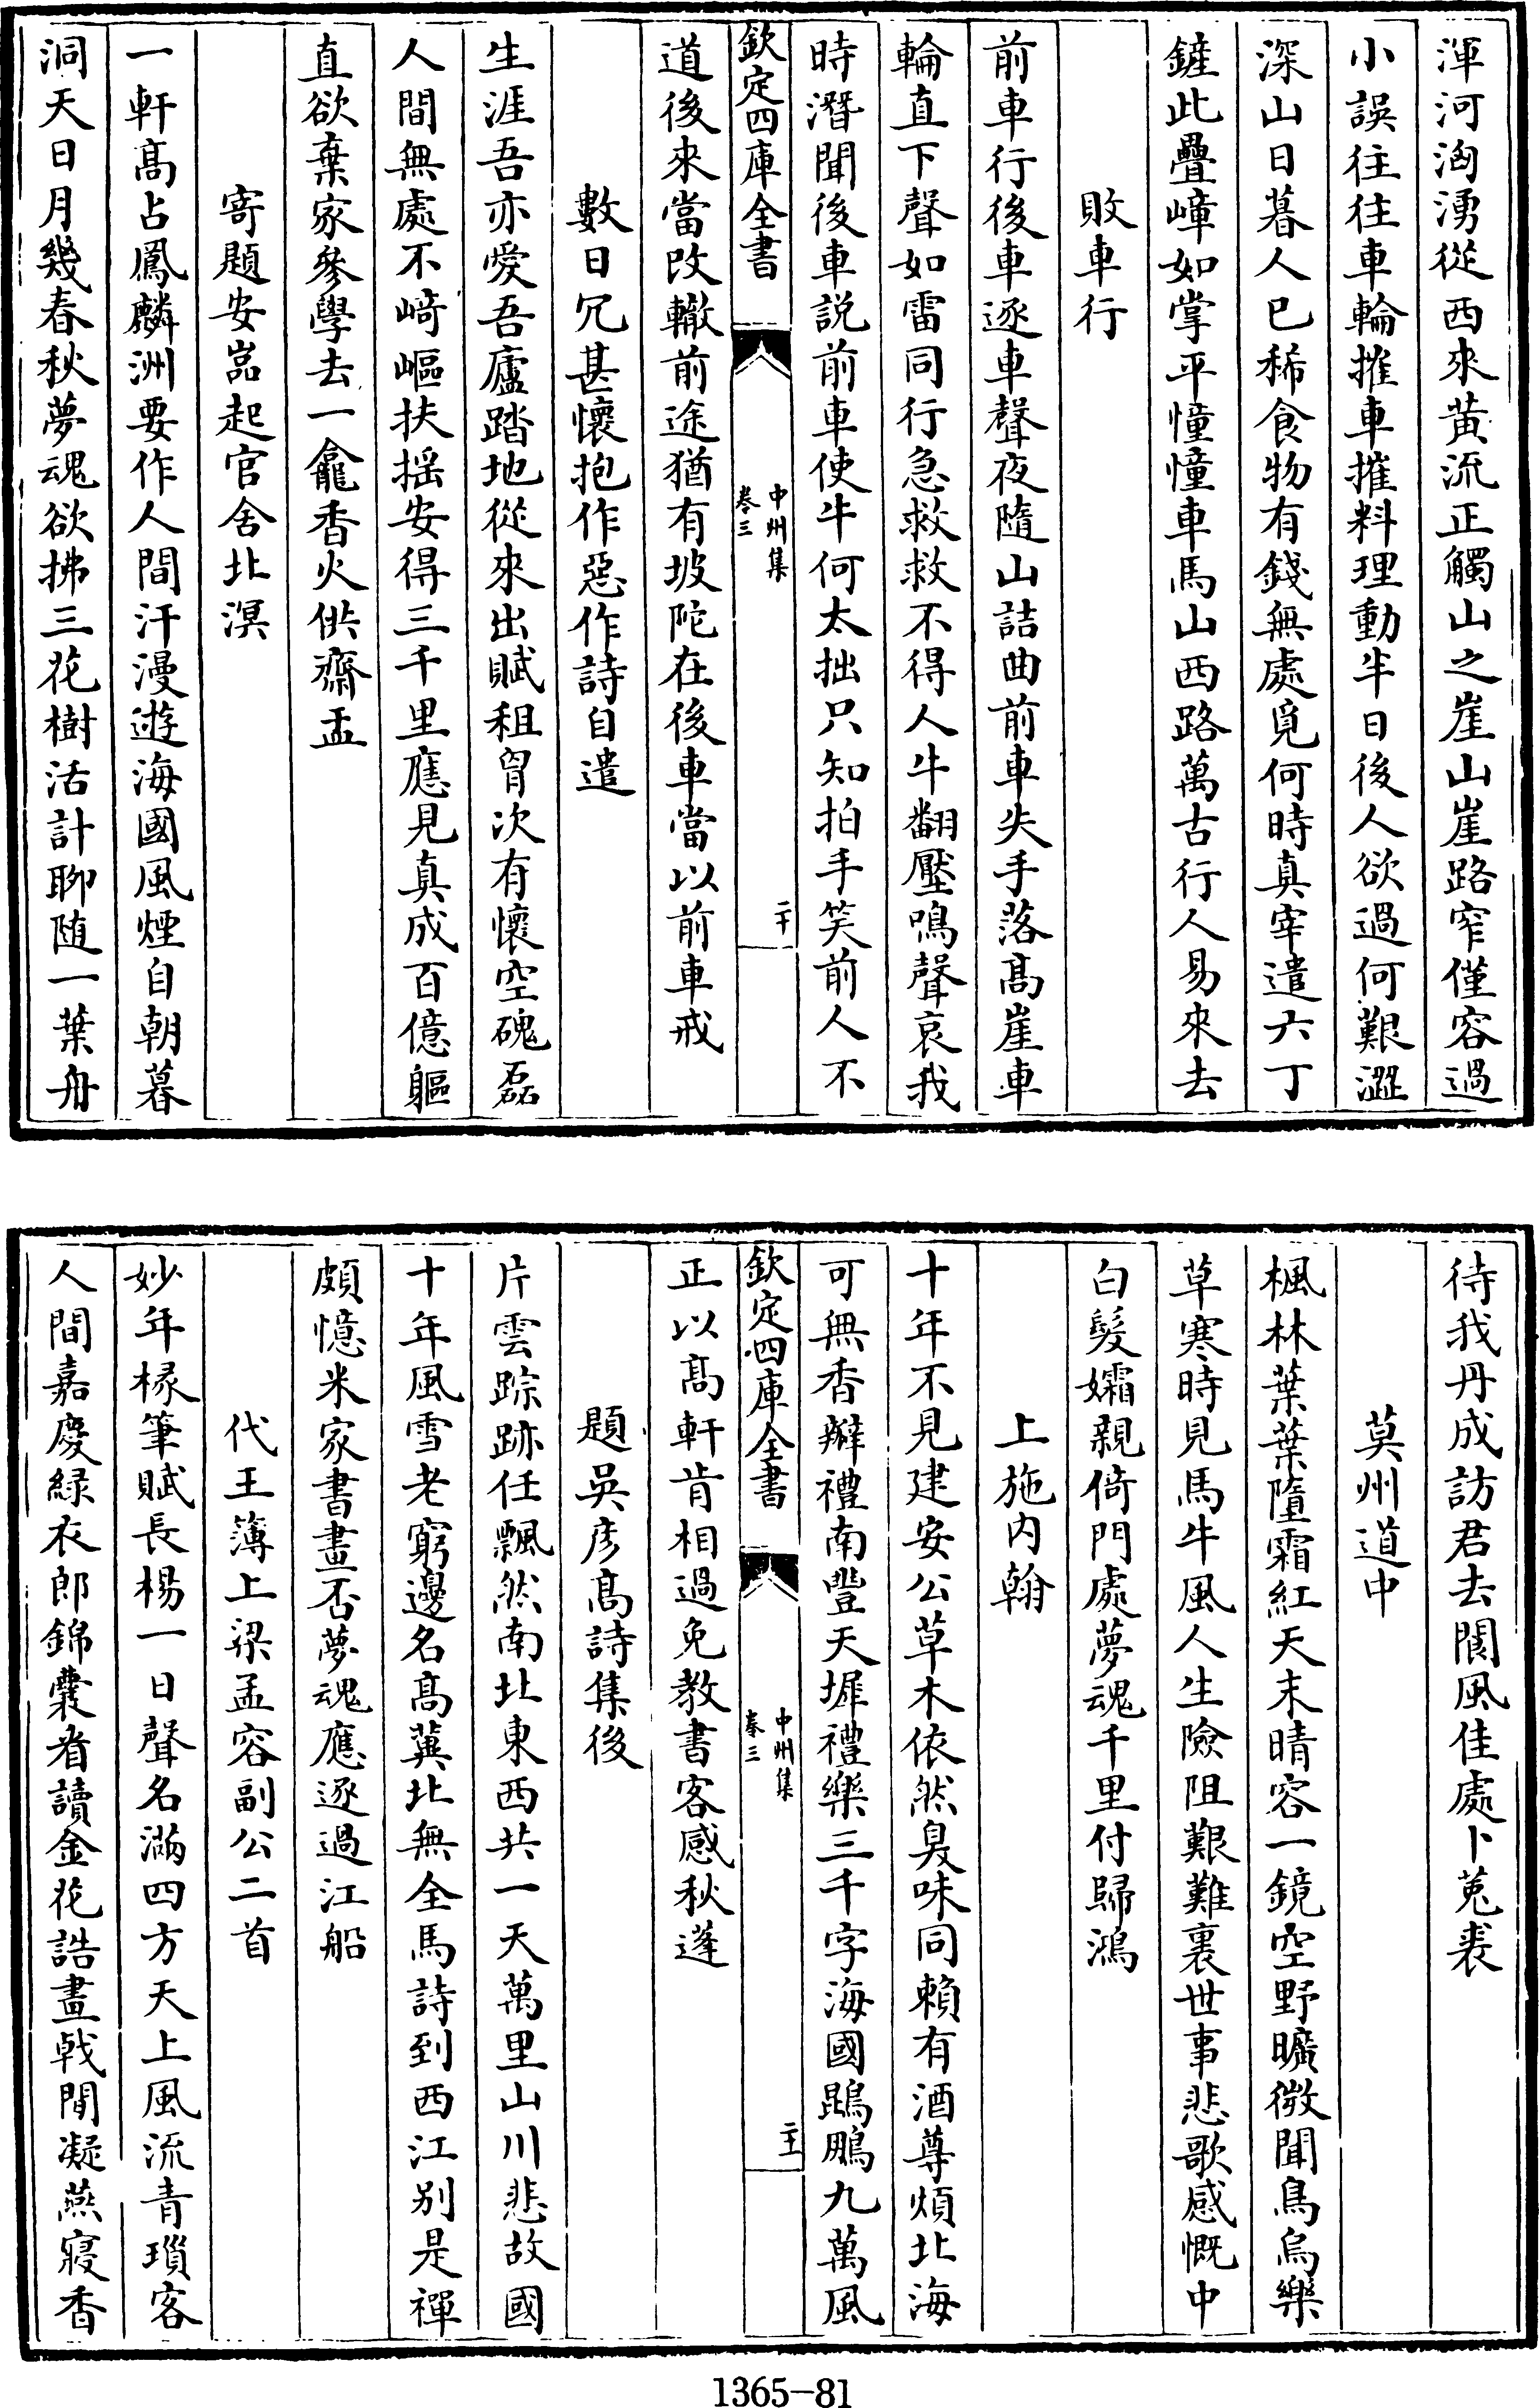 渾河洶湧從西來黃流正觸山之崖山崖路窄僅容過
小誤往往車輪摧車摧料理動半日後人欲過何艱澀
深山日暮人已稀食物有錢無處覓何時真宰遣六丁
鏟此疊嶂如掌平憧憧車馬山西路萬古行人易來去
敗車行
前車行後車逐車聲夜隨山詰曲前車失手落髙崖車
輪直下聲如雷同行急救救不得人牛翻壓鳴聲哀我
時潛聞後車說前車使牛何太拙只知拍手笑前人不
欽定四庫全書
中州集
卷三
二十
道後來當改轍前途猶有坡陀在後車當以前車戒
數日冗甚懷抱作惡作詩自遣
生涯吾亦愛吾廬踏地從來出賦租胷次有懷空磈磊
人間無處不﨑嶇扶揺安得三千里應見真成百億軀
直欲棄家參學去一龕香火供齋盂
寄題安嵓起官舍北溟
一軒髙占鳳麟洲要作人間汗漫遊海國風煙自朝暮
洞天日月幾春秋夢魂欲拂三花樹活計聊随一葉舟
待我丹成訪君去閬風佳處卜莵裘
莫州道中
楓林葉葉墮霜紅天末晴容一鏡空野曠微聞鳥烏樂
草寒時見馬牛風人生險阻艱難裏世事悲歌感慨中
白髮孀親倚門處夢魂千里付歸鴻
上施內翰
十年不見建安公草木依然臭味同賴有酒尊煩北海
可無香瓣禮南豐天墀禮樂三千字海國鵾鵬九萬風
欽定四庫全書
中州集
卷三
二十一
正以髙軒肯相過免教書客感秋蓬
題吳彦髙詩集後
片雲踪跡任飄然南北東西共一天萬里山川悲故國
十年風雪老窮邊名髙冀北無全馬詩到西江别是禪
頗憶米家書畫否夢魂應逐過江船
代王簿上梁孟容副公二首
妙年椽筆賦長楊一日聲名滿四方天上風流青瑣客
人間嘉慶緑衣郎錦囊看讀金花誥畫戟閒凝燕寢香
1365-81